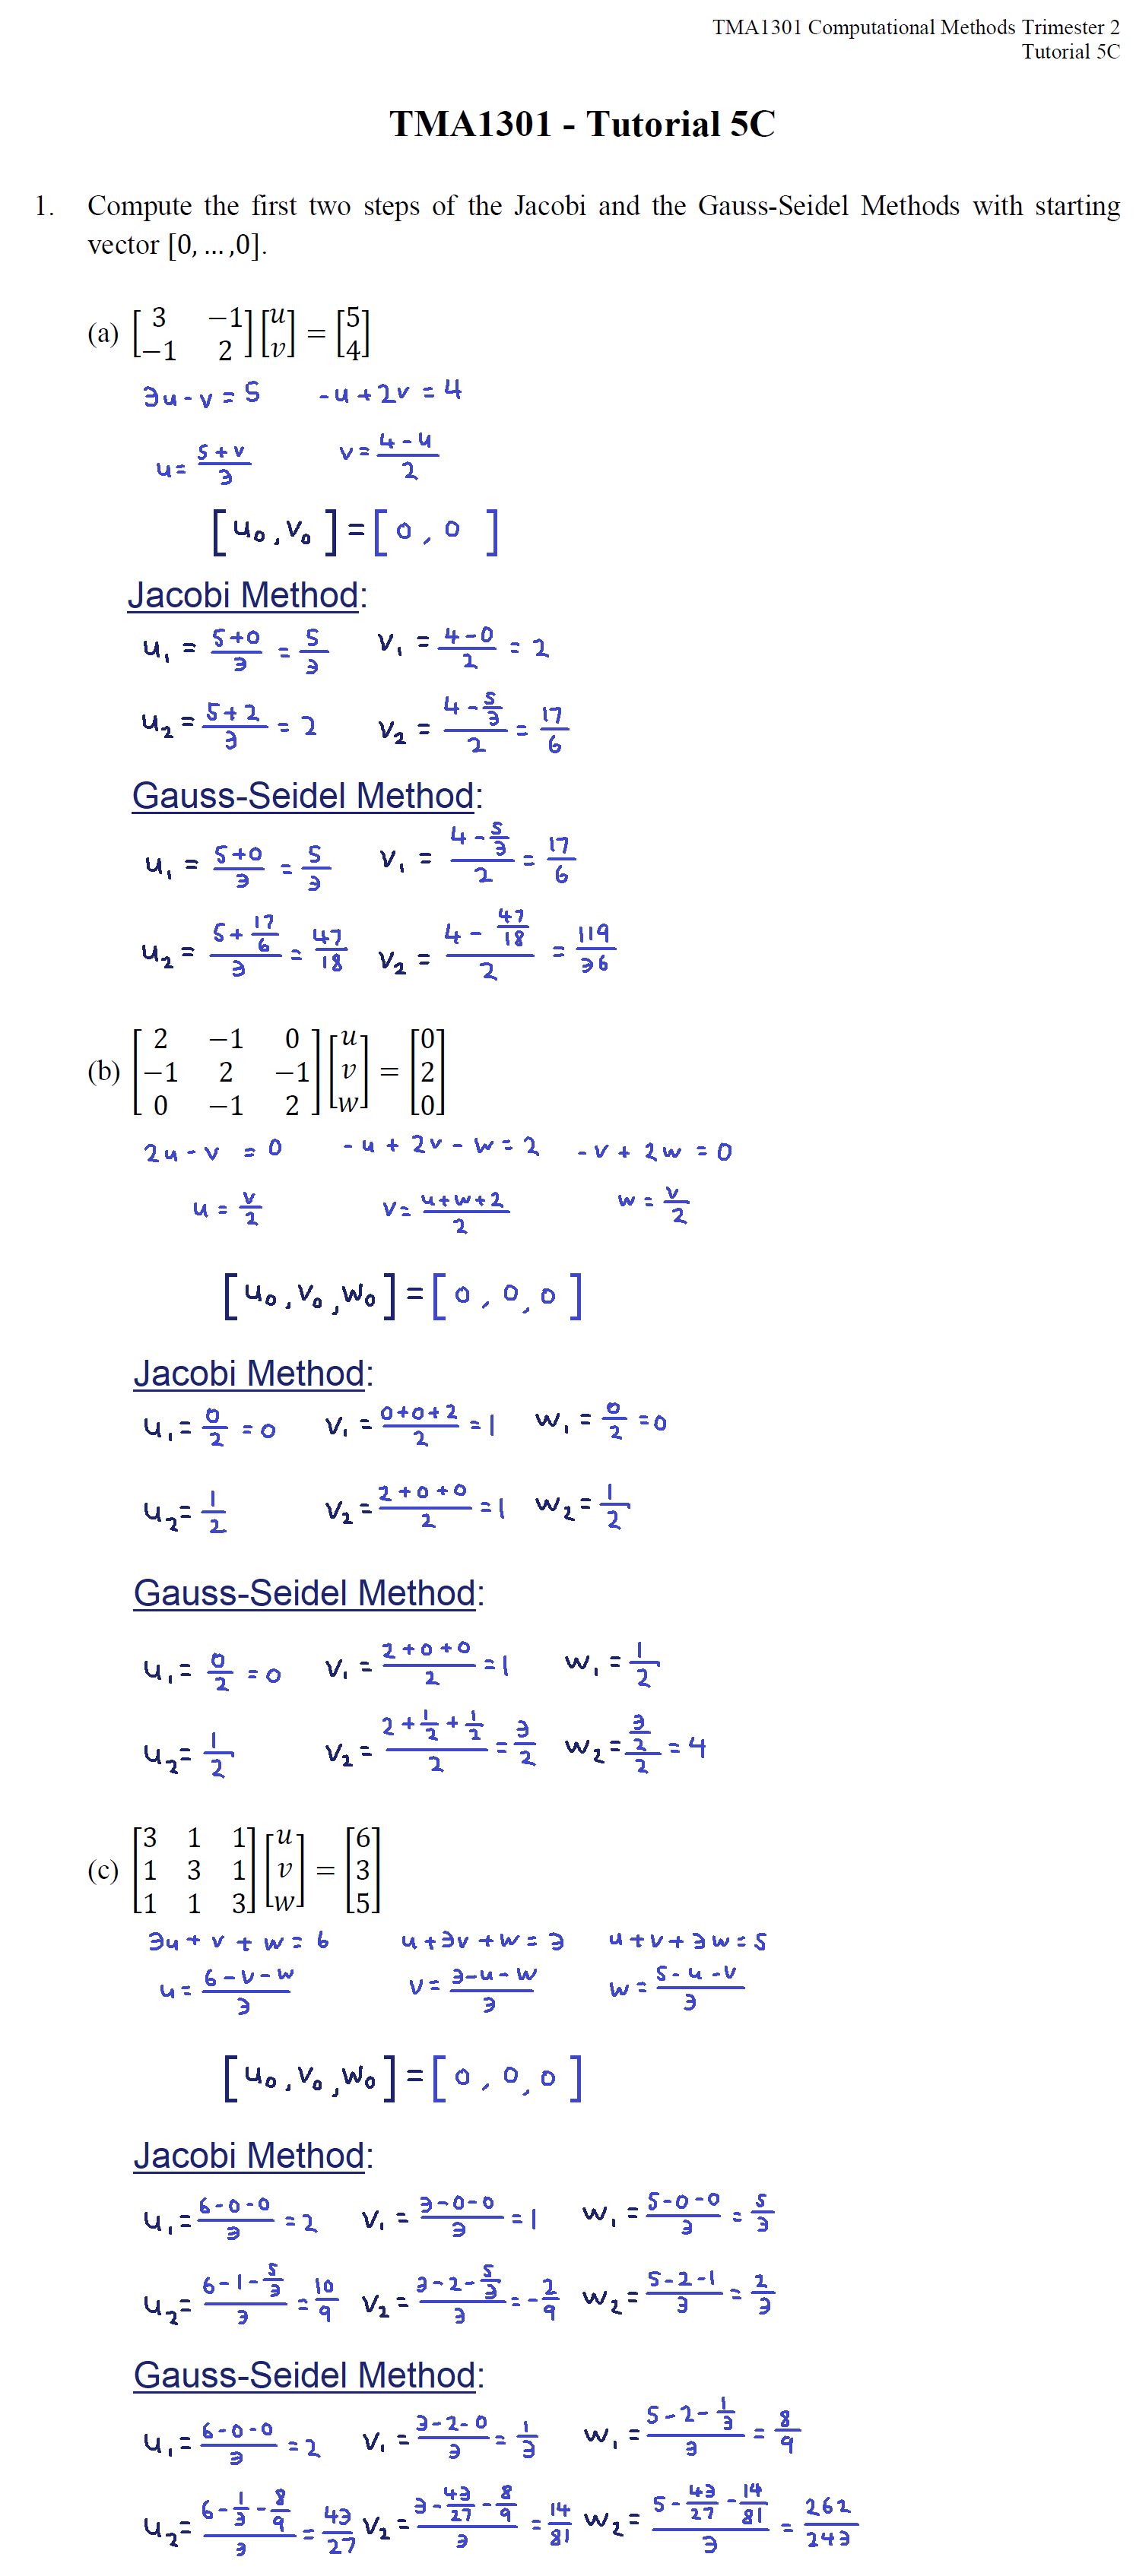 TMA1301 Computational Methods Trimester 2
Tutorial 5C
TMA1301 - Tutorial 5C
1. Compute the first two steps of the Jacobi and the Gauss-Seidel Methods with starting
vector [0, … ,0].
(a) [3 −1; −1 2] [u; v] = [5; 4]
3u - v = 5 -u + 2v = 4
u = (5+v)/3 v = (4-u)/2
[u₀, v₀] = [0, 0]
Jacobi Method:
u₁ = (5+0)/3 = 5/3 v₁ = (4-0)/2 = 2
u₂ = (5+2)/3 = 2 v₂ = (4-5/3)/2 = 17/6
Gauss-Seidel Method:
u₁ = (5+0)/3 = 5/3 v₁ = (4-5/3)/2 = 17/6
u₂ = (5+17/6)/3 = 47/18 v₂ = (4-47/18)/2 = 119/36
(b) [2 −1 0; −1 2 −1; 0 −1 2] [u; v; w] = [0; 2; 0]
2u - v = 0 -u + 2v - w = 2 -v + 2w = 0
u = v/2 v = (u+w+2)/2 w = v/2
[u₀, v₀, w₀] = [0, 0, 0]
Jacobi Method:
u₁ = 0/2 = 0 v₁ = (0+0+2)/2 = 1 w₁ = 0/2 = 0
u₂ = 1/2 v₂ = (2+0+0)/2 = 1 w₂ = 1/2
Gauss-Seidel Method:
u₁ = 0/2 = 0 v₁ = (2+0+0)/2 = 1 w₁ = 1/2
u₂ = 1/2 v₂ = (2+1/2+1/2)/2 = 3/2 w₂ = (3/2)/2 = 4
(c) [3 1 1; 1 3 1; 1 1 3] [u; v; w] = [6; 3; 5]
3u + v + w = 6 u + 3v + w = 3 u + v + 3w = 5
u = (6-v-w)/3 v = (3-u-w)/3 w = (5-u-v)/3
[u₀, v₀, w₀] = [0, 0, 0]
Jacobi Method:
u₁ = (6-0-0)/3 = 2 v₁ = (3-0-0)/3 = 1 w₁ = (5-0-0)/3 = 5/3
u₂ = (6-1-5/3)/3 = 10/9 v₂ = (3-2-5/3)/3 = -2/9 w₂ = (5-2-1)/3 = 2/3
Gauss-Seidel Method:
u₁ = (6-0-0)/3 = 2 v₁ = (3-2-0)/3 = 1/3 w₁ = (5-2-1/3)/3 = 8/9
u₂ = (6-1/3-8/9)/3 = 43/27 v₂ = (3-43/27-8/9)/3 = 14/81 w₂ = (5-43/27-14/81)/3 = 262/243